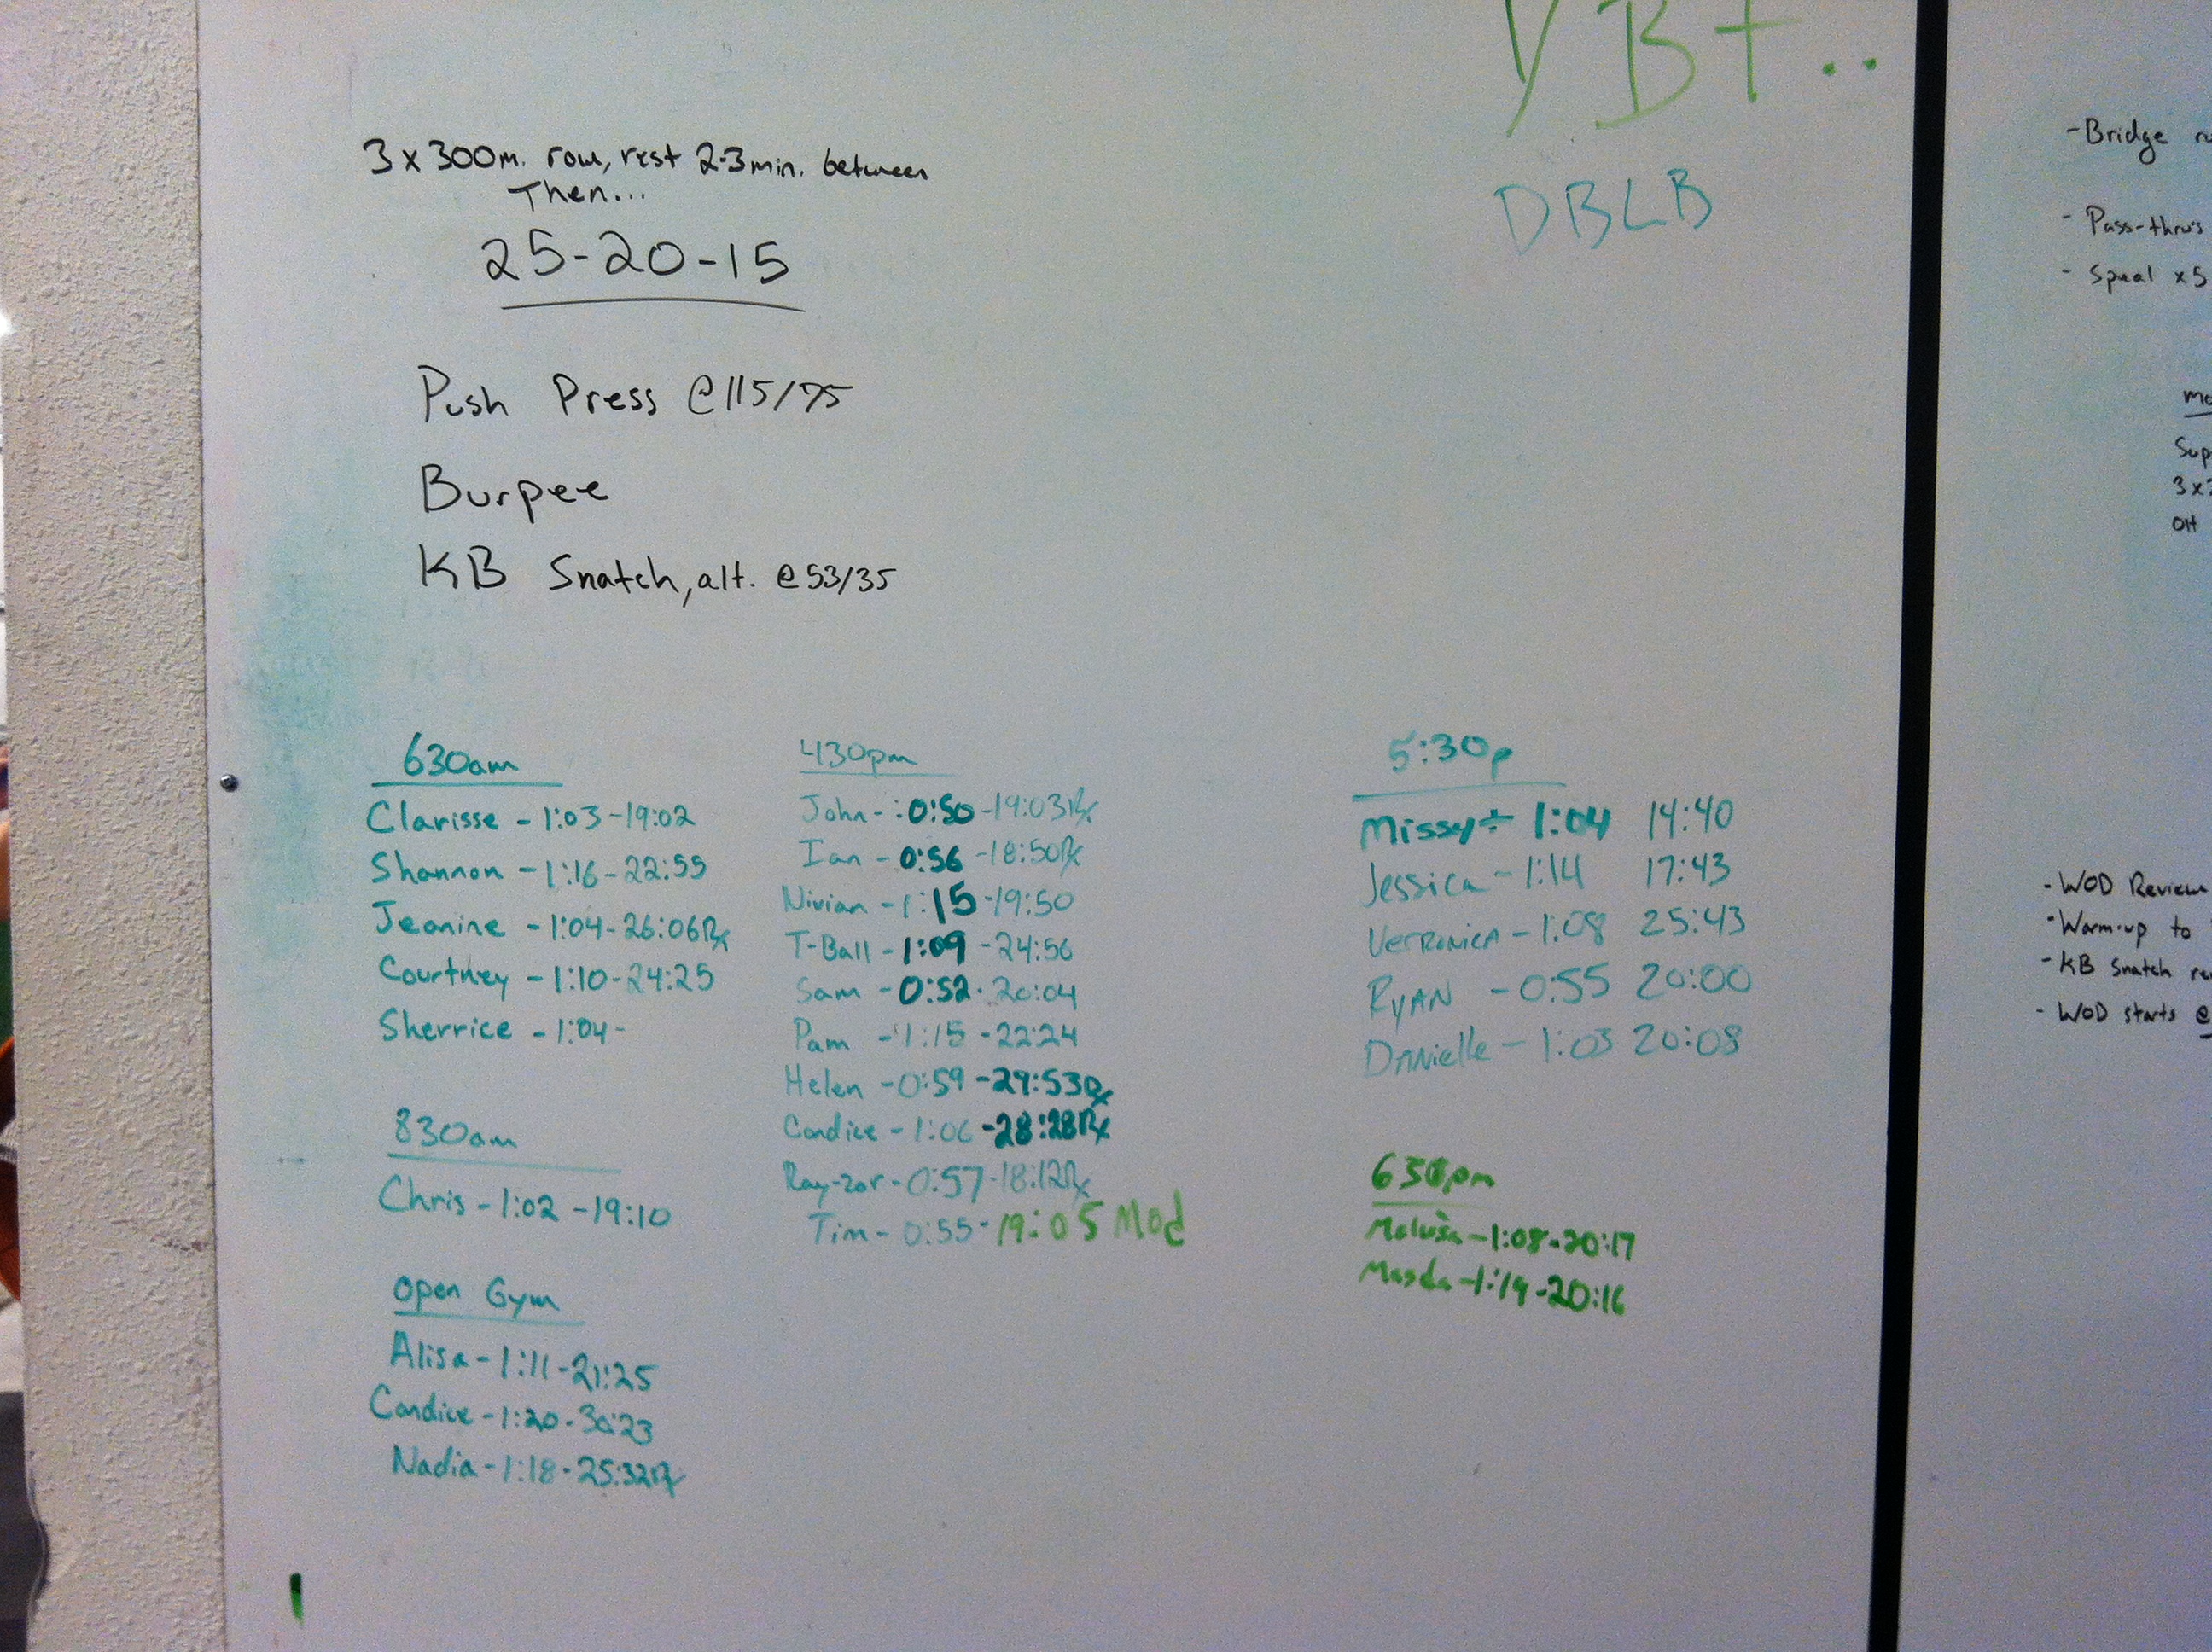 3 x 300m. row, rest 2-3 min. between
Then...
25-20-15
Push Press @115/75
Burpee
KB Snatch, alt. @53/35
DBLB
630am
Clarisse - 1:03 - 19:02
Shannon - 1:16 - 22:55
Jeanine - 1:04 - 26:06 Rx
Courtney - 1:10 - 24:25
Sherrice - 1:04 -
830am
Chris - 1:02 - 19:10
Open Gym
Alisa - 1:11 - 21:25
Candice - 1:20 - 30:23
Nadia - 1:18 - 25:32 Rx
430pm
John - :0:50 - 19:03 Rx
Ian - 0:56 - 18:50 Rx
Nivian - 1:15 - 19:50
T-Ball - 1:09 - 24:56
Sam - 0:52 - 20:04
Pam - 1:15 - 22:24
Helen - 0:59 - 29:53 Rx
Candice - 1:06 - 28:28 Rx
Ray-zor - 0:57 - 18:12 Rx
Tim - 0:55 - 19:05 Mod
5:30p
Missy - 1:04 14:40
Jessica - 1:14 17:43
Veronica - 1:08 25:43
RYAN - 0:55 20:00
DANielle - 1:03 20:08
630pm
1:08 - 20:17
1:19 - 20:16
- Bridge
- Pass-thrus
- Speal x5
3x
OH
- WOD Review
- Warm-up to
- KB Snatch
- WOD starts @